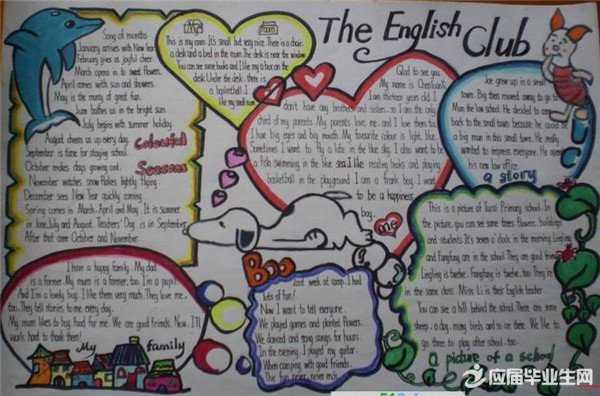 The English Club
Song of months
January arrives with New Year
February gives us joyful cheer
March opens in to sweet flowers.
April comes with sun and showers.
May is the marry of great fun.
June bathes us in the bright sun.
July begins with summer holiday.
August cheers us up every day.
September is time for staying school.
October makes days growing cool.
November watches snow flakes lightly flying.
December sees New Year quickly coming.
Spring comes in March, April and May. It is summer
in June, July and August. Teachers' Day is in September.
After that come October and November.
Colourful
Seasons
My
Room
This is my room. It's small but very nice. There is a chair,
a desk and a bed in the room. The desk is near the window
You can see some books and
on the
desk. Under the desk, there is
a basketball. I
like my small room.
Glad to see you.
My name is
I am thirteen years old. I
don't have any brothers and sisters, so I am the only
child of my parents. My parents love me, and I love them too.
I have big eyes and big mouth. My favourite colour is light blue.
Sometimes I want to fly a kite in the blue sky. I also want to be
a fish swimming in the blue sea. I like reading books and playing
basketball in the playground. I am a frank boy. I want
to be a happiness
boy.
me
Joe grew up in a small
town. Big then moved away to go to
the law school. He decided to come
back to the small town because he could be
a big man in this small town. He really
wanted to impress everyone. He opened
his new law office.
a story
I have a happy family. My dad
is a farmer. My mum is a farmer, too. I'm a pupil.
And I'm a lovely boy. I like them very much. They love me,
too. They tell stories to me every day.
My mum likes to buy food for me. We are good friends. Now, I'll
work hard to thank them!
My family
Boo
last week at camp. I had
lots of fun!
Now I want to tell everyone.
We played games and planted flowers.
We danced and sang songs for hours.
In the evening, I played my guitar.
When camping with good friends.
The fun never, never ends.
This is a picture of
Primary school. In
the picture, you can see some trees, flowers, buildings
and students. It's seven o'clock in the morning. Lingling
and Fangfang are in the school. They are good friends.
Lingling is twelve. Fangfang is twelve, too. They're
in the same class. Miss Li is their English teacher.
You can see a hill behind the school. There are some
sheep, a dog, many birds and
on there. We like to
go there to play after school, too.
a picture of a school
应届毕业生网